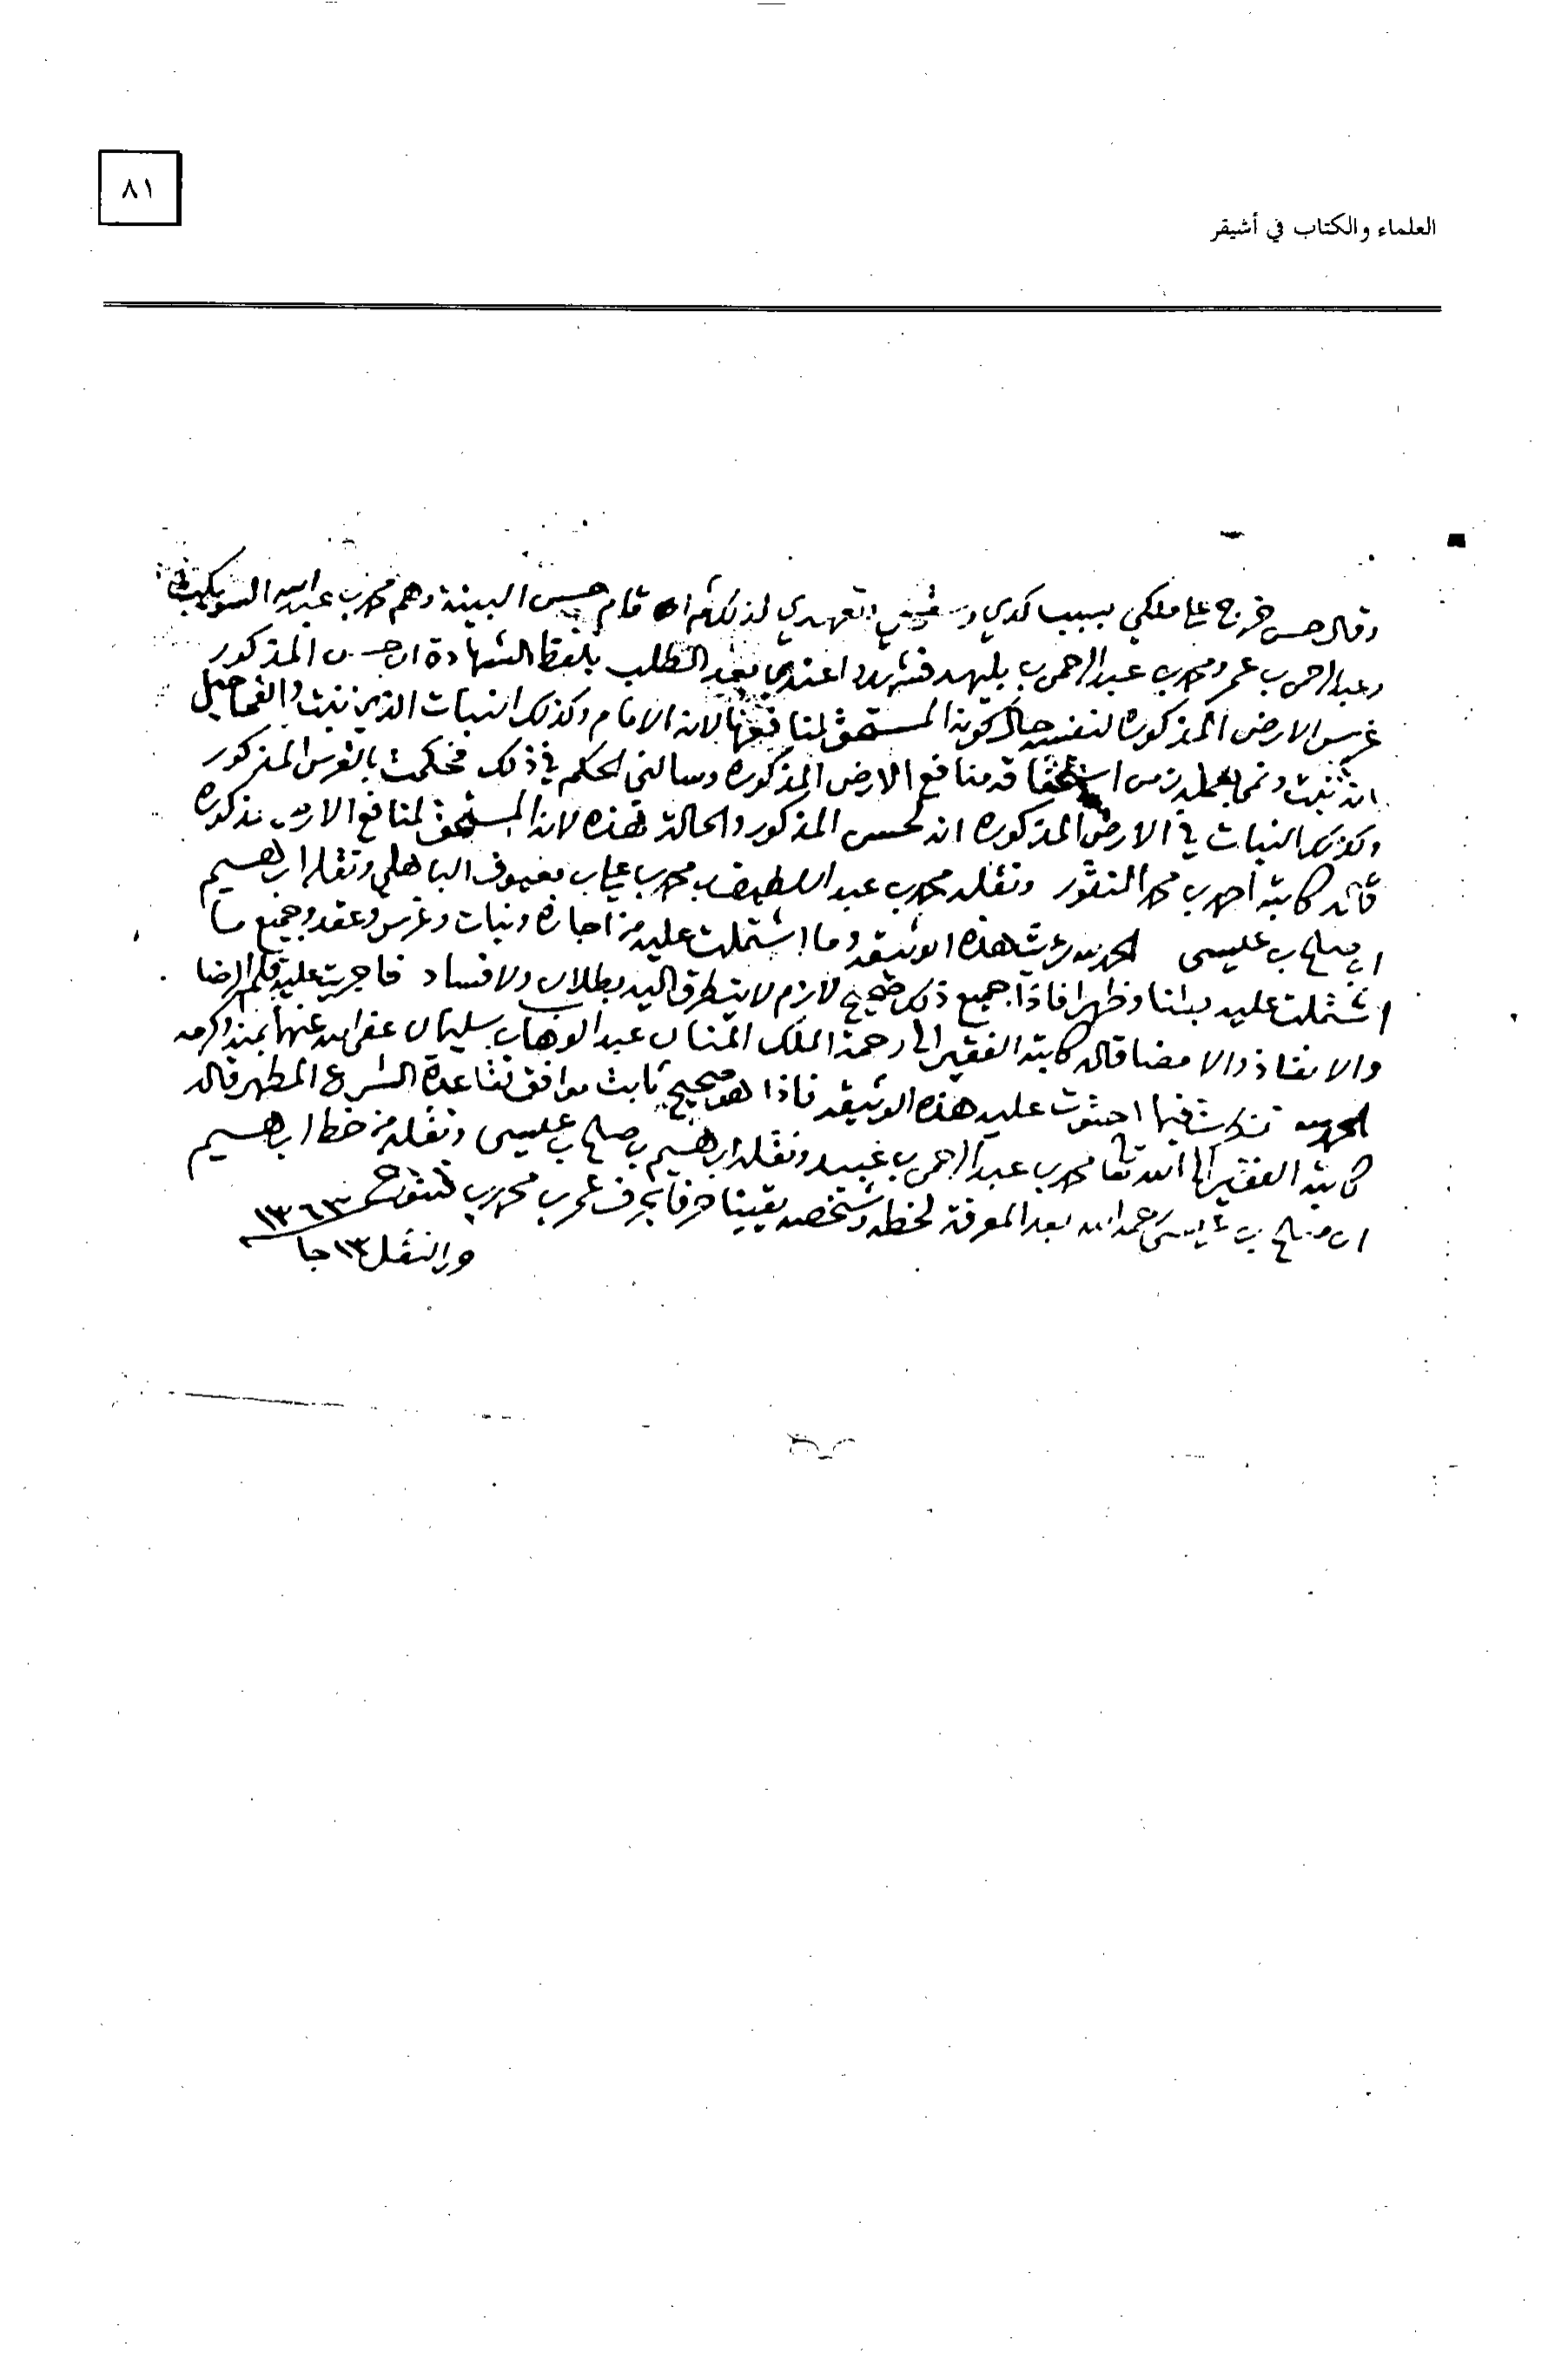 ٨١
العلماء والكتاب في أشيقر
وقال حسن خرج على ملكي بسبب كدي و تعهدي لذلك ثم ان قام حسن البينة وهم محمد بن عبدالله السويكت
وعبدالرحمن بن عمر ومحمد بن عبدالرحمن بن بليهد فشهدوا عندي بعد الطلب بلفظ الشهادة ان حسن المذكور
غرس الارض المذكوره لنفسه حال كونه المستحق لمنافعها لانه الامام وكذلك النبات الذي نبت
انه نبت ونمى بعمله زمن استحقاقه منافع الارض المذكوره وسالني الحكم في ذلك فحكمت بالغرس المذكور
وكذلك النبات في الارض المذكوره انه لحسن المذكور والحالة هذه لانه المستحق لمنافع الارض المذكوره
قاله كاتبه احمد بن محمد المنقور ونقله محمد بن عبد اللطيف بن محمد بن علي بن معيوف الباهلي ونقله ابرهيم
ابن صالح بن عيسى الحمد لله هذه الوثيقه وما اشتملت عليه من اجارة ونبات وغرس وعقد وجميع ما
اشتملت عليه بطنا وظهرا فاذا جميع ذلك صحيح لازم لا يتطرق اليه بطلان ولا فساد فاجريت عليه قلم الرضا
والانفاذ والامضا قاله كاتبه الفقير الى رحمة الملك المنان عبد الوهاب بن سليمان عفى الله عنهما بمنه وكرمه
الحمد لله فيما احتوت عليه هذه الوثيقه فاذا هو صحيح ثابت موافق لقاعدة الشرع المطهر قاله
كاتبه الفقير الى الله تعا محمد بن عبد الرحمن بن عبيد ونقله ابرهيم بن صالح بن عيسى ونقله من خط ابرهيم
ابن صالح بن عيسى رحمه الله بعد المعرفة لخطه وشخصه يقينا حرفا بحرف عمر بن محمد بن فنتوخ
والنقل ١٣ جا ١٣٦٣